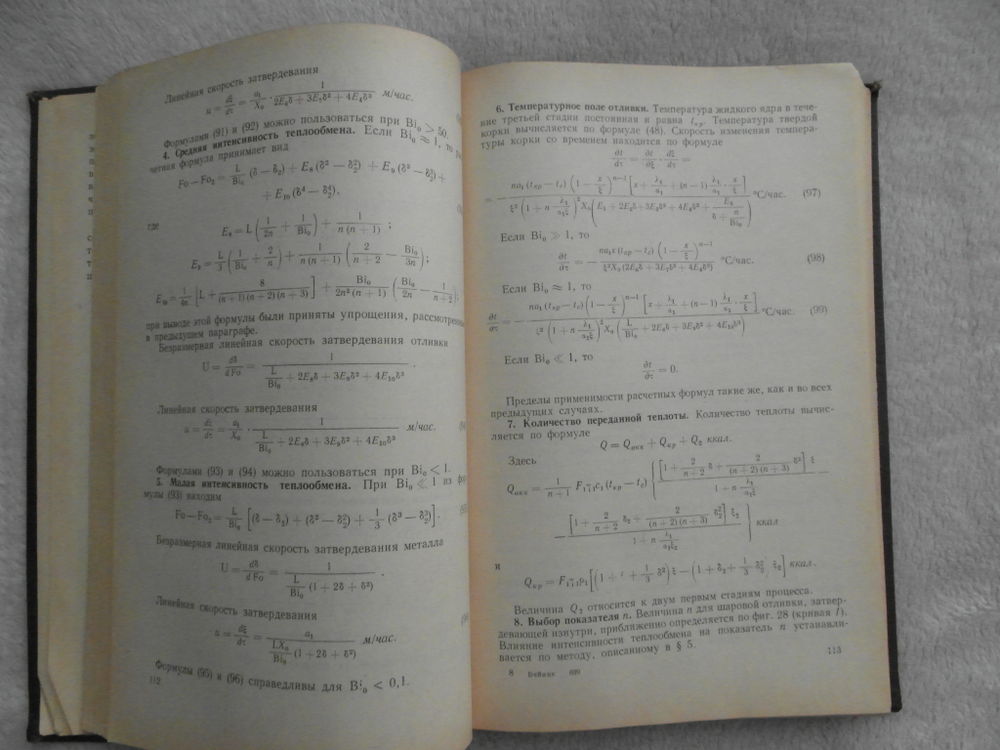 Линейная скорость затвердевания
u = dξ/dτ = a₁/X₀ · 1/(2E₆δ + 3E₇δ² + 4E₈δ³) м/час.
Формулами (91) и (92) можно пользоваться при Bi₀ > 50.
4. Средняя интенсивность теплообмена. Если Bi₀ ≈ 1, то
четная формула принимает вид
Fo — Fo₂ = L/Bi₀ (δ — δ₂) + E₈ (δ² — δ₂²) + E₉ (δ³ — δ₂³) +
+ E₁₀ (δ⁴ — δ₂⁴),
где
E₈ = L (1/2n + 1/Bi₀) + 1/(n (n + 1)) ;
E₉ = L/3 (1/Bi₀ + 2/n) + 1/(n (n + 1)) (2/(n + 2) — Bi₀/3n) ;
E₁₀ = 1/4n [L + 8/((n + 1) (n + 2) (n + 3))] + Bi₀/(2n² (n + 1)) (Bi₀/2n — 1/(n + 2)),
при выводе этой формулы были приняты упрощения, рассмотренные
в предыдущем параграфе.
Безразмерная линейная скорость затвердевания отливки
U = dδ/dFo = 1/(L/Bi₀ + 2E₈δ + 3E₉δ² + 4E₁₀δ³) .
Линейная скорость затвердевания
u = dξ/dτ = a₁/X₀ · 1/(L/Bi₀ + 2E₈δ + 3E₉δ² + 4E₁₀δ³) м/час.
Формулами (93) и (94) можно пользоваться при Bi₀ < 1.
5. Малая интенсивность теплообмена. При Bi₀ ≪ 1 из фор
мулы (93) находим
Fo — Fo₂ = L/Bi₀ [(δ — δ₂) + (δ² — δ₂²) + 1/3 (δ³ — δ₂³)] .
Безразмерная линейная скорость затвердевания металла
U = dδ/dFo = 1/(L/Bi₀ (1 + 2δ + δ²)) .
Линейная скорость затвердевания
u = dξ/dτ = a₁/(LX₀/Bi₀ (1 + 2δ + δ²)) м/час.
Формулы (95) и (96) справедливы для Bi₀ < 0,1.
112
6. Температурное поле отливки. Температура жидкого ядра в тече-
ние третьей стадии постоянна и равна tкр. Температура твердой
корки вычисляется по формуле (48). Скорость изменения темпера-
туры корки со временем находится по формуле
∂t/∂τ = ∂t/∂ξ · dξ/dτ =
= — na₁ (tкр — tс) (1 — x/ξ)ⁿ⁻¹ [x + λ₁/α₁ + (n — 1) λ₁/α₁ · x/ξ] / ξ² (1 + n λ₁/α₁ξ)² X₀ (E₁ + 2E₂δ + 3E₃δ² + 4E₄δ³ + E₅/(δ + n/Bi₀)) °С/час. (97)
Если Bi₀ ≫ 1, то
∂t/∂τ = — na₁x (tкр — tс) (1 — x/ξ)ⁿ⁻¹ / ξ²X₀ (2E₆δ + 3E₇δ² + 4E₈δ³) °С/час. (98)
Если Bi₀ ≈ 1, то
∂t/∂τ = — na₁ (tкр — tс) (1 — x/ξ)ⁿ⁻¹ [x + λ₁/α₁ + (n — 1) λ₁/α₁ · x/ξ] / ξ² (1 + n λ₁/α₁ξ)² X₀ (L/Bi₀ + 2E₈δ + 3E₉δ² + 4E₁₀δ³) °С/час. (99)
Если Bi₀ ≪ 1, то
∂t/∂τ = 0.
Пределы применимости расчетных формул такие же, как и во всех
предыдущих случаях.
7. Количество переданной теплоты. Количество теплоты вычис-
ляется по формуле
Q = Qохл + Qкр + Q₂ ккал.
Здесь
Qохл = 1/(n + 1) F₁γ₁c₁ (tкр — tс) { [1 + 2/(n + 2) δ + 2/((n + 2) (n + 3)) δ²] ξ / (1 + n λ₁/α₁ξ) —
— [1 + 2/(n + 2) δ₂ + 2/((n + 2) (n + 3)) δ₂²] ξ₂ / (1 + n λ₁/α₁ξ₂) } ккал
и
Qкр = F₁γ₁ρ₁ [(1 + δ + 1/3 δ²) ξ — (1 + δ₂ + 1/3 δ₂²) ξ₂] ккал.
Величина Q₂ относится к двум первым стадиям процесса.
8. Выбор показателя n. Величина n для шаровой отливки, затвер-
девающей изнутри, приближенно определяется по фиг. 28 (кривая 1).
Влияние интенсивности теплообмена на показатель n устанавли-
вается по методу, описанному в § 5.
8 Вейник 609
113